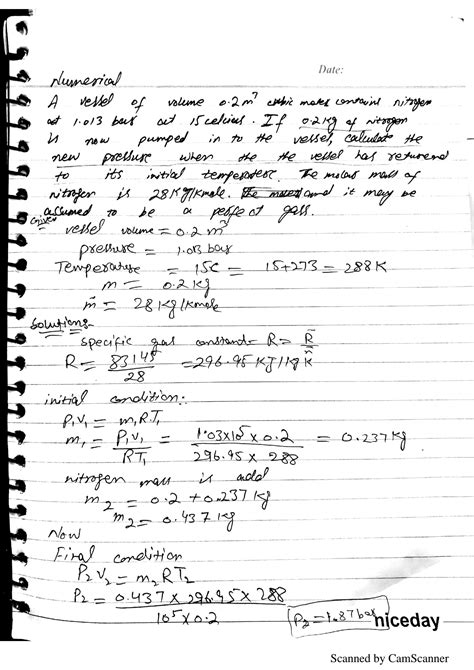 Date:
Numerical
A vessel of volume 0.2 m³ cubic mates contains nitrogen
at 1.013 bars at 15 celcius. If 0.2 kg of nitrogen
is now pumped in to the vessel, calculate the
new pressure when the the vessel has returend
to its initial temperature. The molar mass of
nitrogen is 28 Kg/Kmole. The and it may be
assumed to be a perfect gass.
Given
vessel volume = 0.2 m³
pressure = 1.013 bar
Temperature = 15C = 15+273 = 288 K
m = 0.2 kg
m̃ = 28 Kg/Kmole
Solutions:-
specific gas constand = R = R̃/m̃
R = 83145/28 = 296.95 KJ/kg K
initial condition:-
P₁V₁ = m₁RT₁
m₁ = P₁V₁/RT₁ = 1.03x10⁵ x 0.2/296.95 x 288 = 0.237 kg
nitrogen mass is add
m₂ = 0.2 + 0.237 kg
m₂ = 0.437 kg
Now
Final condition
P₂V₂ = m₂RT₂
P₂ = 0.437 x 296.95 x 288/10⁵ x 0.2
P₂ = 1.87 bar
niceday
Scanned by CamScanner